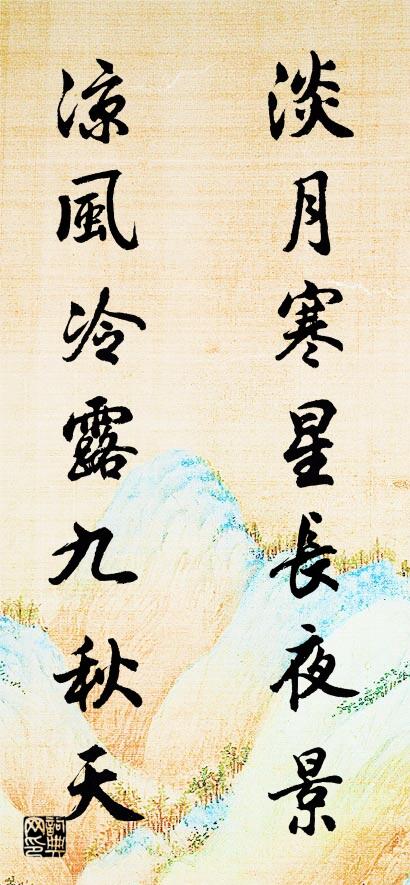 淡月寒星長夜景
凉風冷露九秋天
詞典网印